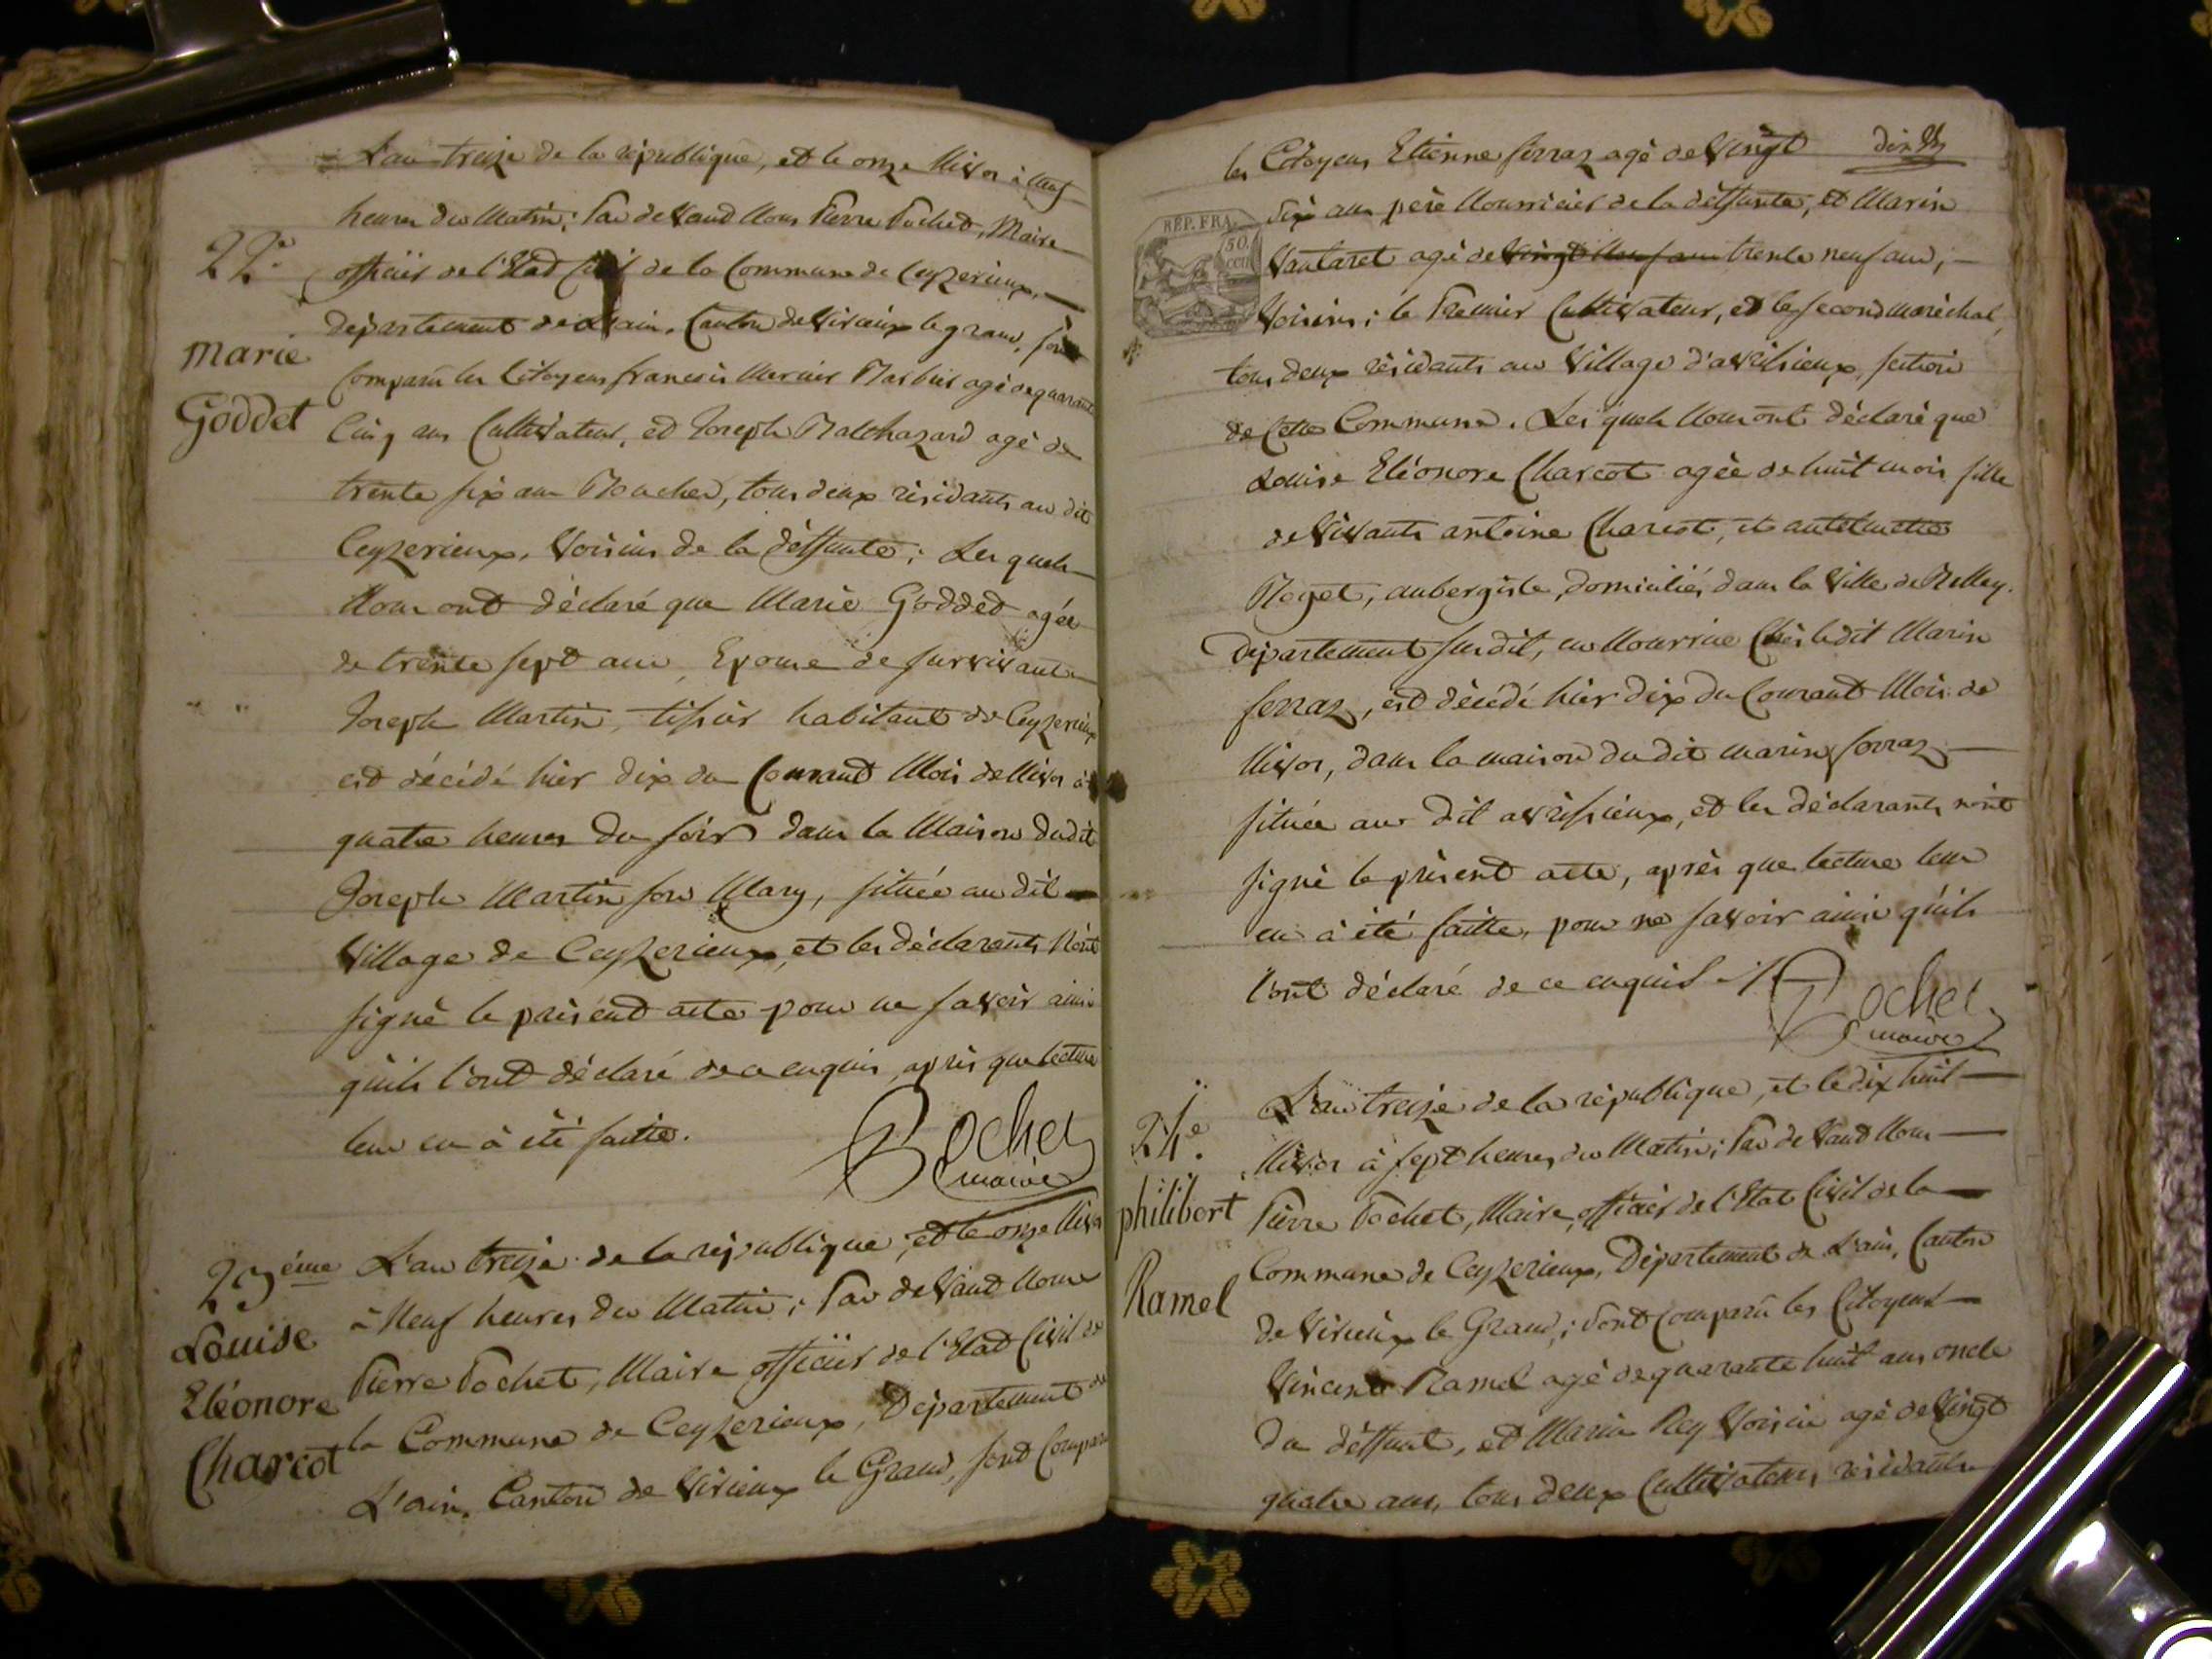 L'an treize de la république, et le onze Nivos à neuf
heures du Matin; Par devand Nous Pierre Pochet, Maire
22e
officier de l'Etad Civil de la Commune de Ceyzerieux,
département de L'ain, Canton de Virieux le grand, sont
Marie
Comparu les Citoyens francois Mercier Barbier agé de quarante
Goddet
Cinq ans Cultivateur, et Joseph Balthazard agé de
trente six ans Boucher, tous deux résidants au dit
Ceyzerieux, Voisins de la déffunte; Les quels
Nous ont déclaré que Marie Godded agée
de trente sept ans, Epouse de survivant
Joseph Martin, tissier habitant de Ceyzerieux
est décédé hier dix du Courant Mois de Nivos à
quatre heures du soir dans la Maison dudit
Joseph Martin son Mary, située au dit
Village de Ceyzerieux, et les déclarants N'ont
signé le présent acte pour ne savoir ainsi
quils l'ont déclaré de ce enquis, après que lecture
leur en à été faitte.
Pochet
maire
23ème
L'an treize de la république, et le onze Nivos
à Neuf heures du Matin; Par devand Nous
Louise
Pierre Pochet, Maire officier de l'Etad Civil de
Eléonore
la Commune de Ceyzerieux, Département de
Charcot
L'ain, Canton de Virieux le Grand, sont Comparu
les Citoyens Etienne ferraz agé de Vingt
dix
six ans père Nourricier de la déffunte, et Marin
REP. FRA.
50. cen
Vautaret agé de vingt neuf ans trente neuf ans,
Voisins; le Premier Cultivateur, et le second maréchal,
tous deux résidants au Village d'avrissieux, section
de Cette Commune. Les quels Nous ont déclaré que
Louise Eléonore Charcot agée de huit mois fille
de Vivants antoine Charcot, et antelmette
Roget, aubergiste, domiciliés dans la Ville de Belley,
Département susdit, en Nourrice Chès ledit Marin
ferraz, est décédé hier dix du Courant Mois de
Nivos, dans la maison du dit marin ferraz
située au dit avrissieux, et les déclarants n'ont
signé le présent acte, après que lecture leur
en à été faitte, pour ne savoir ainsi qu'ils
l'ont déclaré de ce enquis.
Pochet
maire
24e
L'an treize de la république, et le dix huit
Nivos à sept heures du Matin; Par devand Nous
philibert
Pierre Pochet, Maire, officier de l'Etat Civil de la
Commune de Ceyzerieux, Département de L'ain, Canton
Ramel
de Virieux le Grand; Sont Comparu les Citoyens
Vincent Ramel agé de quarante huit ans oncle
du déffunt, et Marin Rey Voisin agé de Vingt
quatre ans, tous deux Cultivateurs résidants